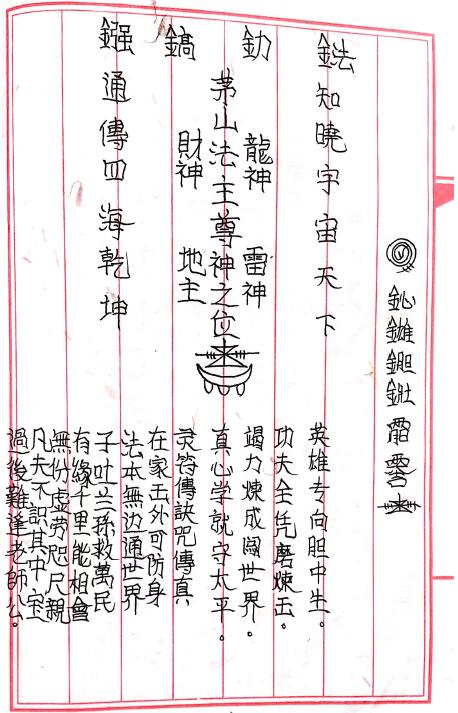 知曉宇宙天下
龍神 雷神
茅山法主尊神之位
財神 地主
鎬
通傳四海乾坤
英雄专向胆中生。
功夫全凭磨煉出。
竭力煉成闖世界。
真心学就守太平。
灵符傳訣咒傳真
在家出外可防身
法本無边通世界
子吐 孫救萬民
有緣千里能相會
無份虚劳咫尺親
凡夫不識其中
過後難逢老師公。